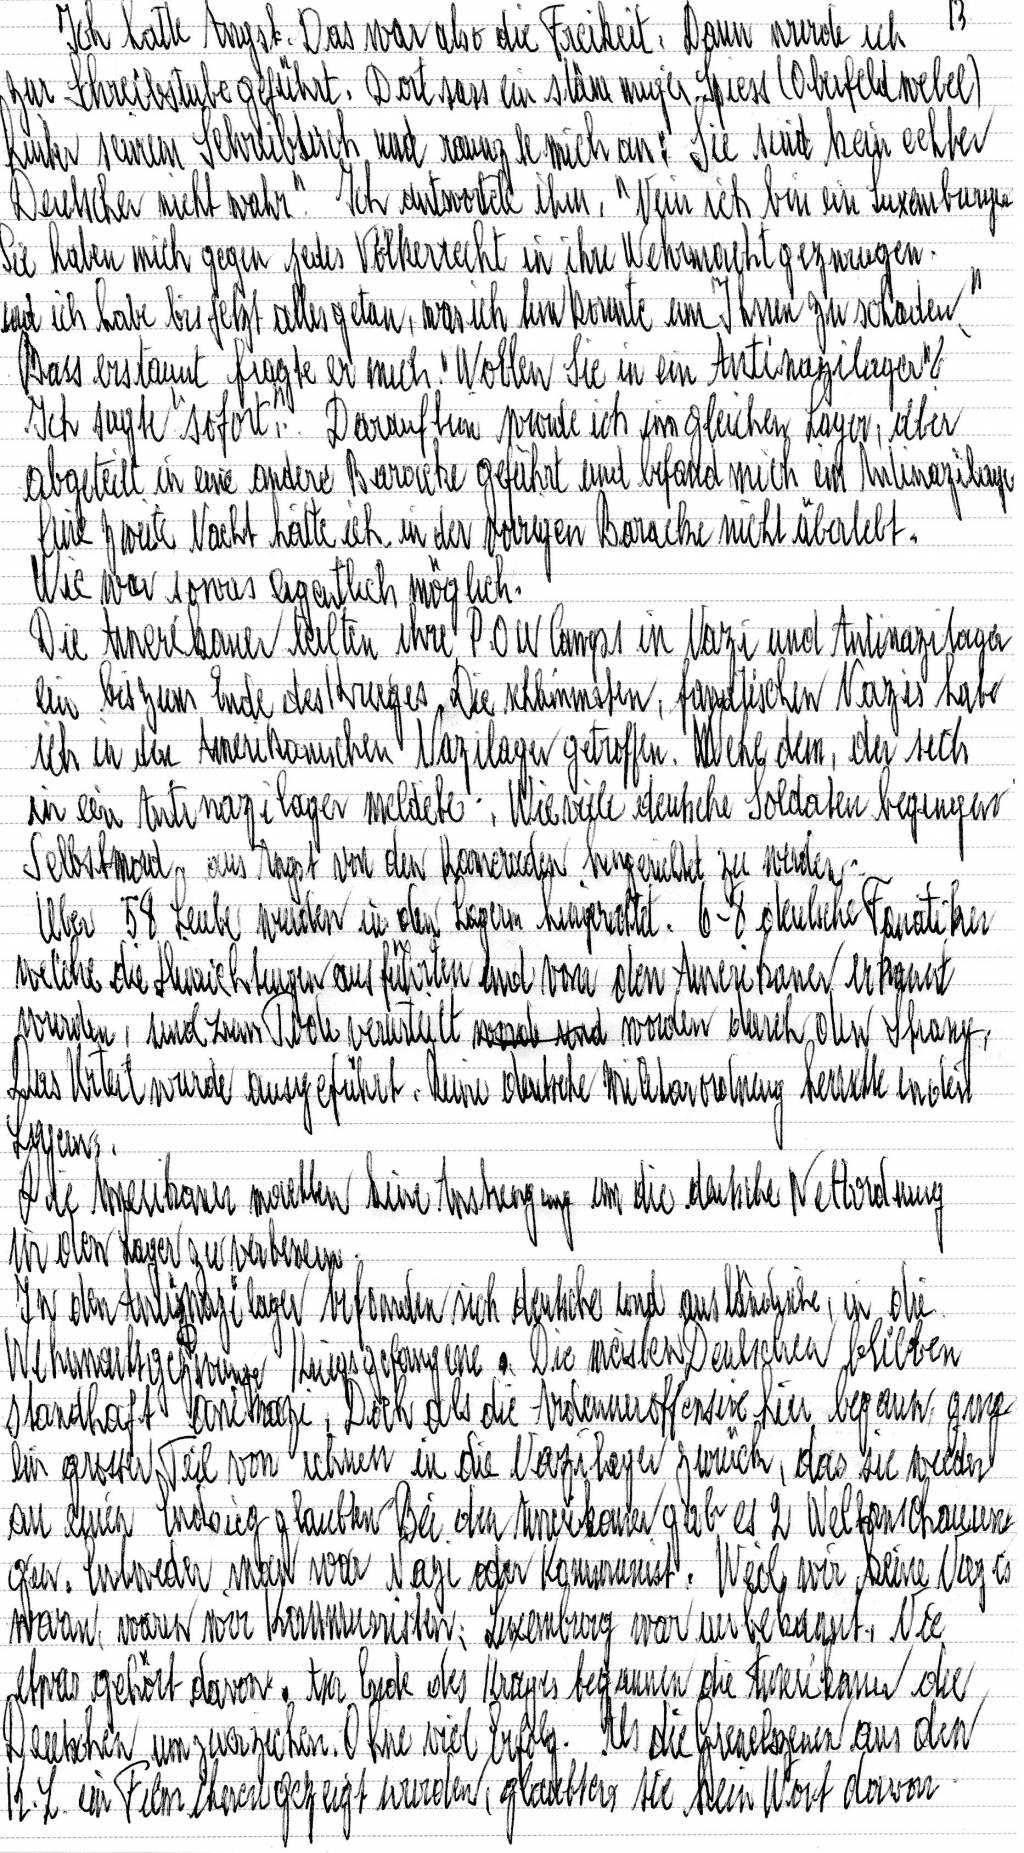 13
Ich hatte Angst. Das war also die Freiheit. Dann wurde ich
zur Schreibstube geführt. Dort sass ein stämmiger Spiess (Oberfeldwebel)
hinter seinem Schreibtisch und raunzte mich an: Sie sind kein echter
Deutscher nicht wahr". Ich antwortete ihm, "Nein ich bin ein Luxemburger
Sie haben mich gegen jedes Völkerrecht in ihre Wehrmacht gezwungen.
und ich habe bis jetzt alles getan, was ich tun konnte um Ihnen zu schaden"
Bass erstaunt fragte er mich. "Wollen Sie in ein Antinazilager"?
Ich sagte "sofort". Daraufhin wurde ich im gleichen Lager, aber
abgeteilt in eine andere Baracke geführt und befand mich im Antinazilager
Eine zweite Nacht hätte ich in der vorigen Baracke nicht überlebt.
Wie war sowas eigentlich möglich.
Die Amerikaner teilten ihre P.O.W Camps in Nazi und Antinazilager
ein bis zum Ende des Krieges. Die schlimmsten, fanatischen Nazis habe
ich in den Amerikanischen Nazilager getroffen. Wehe dem, der sich
in ein Antinazilager meldete. Wieviele deutsche Soldaten begingen
Selbstmord, aus Angst von den Kameraden hingerichtet zu werden.
Über 58 Leute wurden in den Lagern hingerichtet. 6-8 deutsche Fanatiker
welche die Hinrichtungen ausführten und von den Amerikaner erkannt
wurden, sind zum Tode verurteilt worden durch den Strang.
Das Urteil wurde ausgeführt. Keine deutsche Militärordnung herrschte in den
Lagern.
Die Amerikaner machten keine Anstrengung um die deutsche
in den Lager zu verbessern.
In den Antinazilager befanden sich deutsche und ausländische, in die
Wehrmacht gezwungene Kriegsgefangene. Die meisten Deutschen blieben
standhaft antinazi. Doch als die Ardennenoffensive hier begann, ging
ein grosser Teil von ihnen in die Nazilager zurück, das sie wieder
an einen Endsieg glaubten Bei den Amerikaner gab es 2 Weltanschauun-
gen. Entweder man war Nazi oder Kommunist. Weil wir keine Nazis
waren, waren wir Kommunisten. Luxemburg war unbekannt. Nie
etwas gehört davon. Am Ende des Krieges begannen die Amerikaner die
Deutschen umzuerziehen. Ohne viel Erfolg. Als die aus den
K.Z. im Film ihnen gezeigt wurden, glaubten sie kein Wort davon